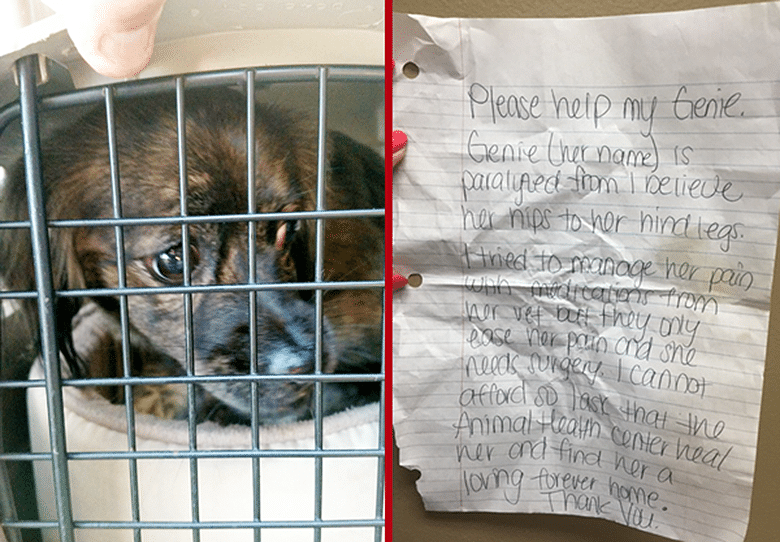 Please help my Genie.
Genie (her name) is
paralyzed from I believe
her hips to her hind legs.
I tried to manage her pain
with medications from
her vet but they only
ease her pain and she
needs surgery. I cannot
afford so I ask that the
Animal Health Center heal
her and find her a
loving forever home.
Thank You.